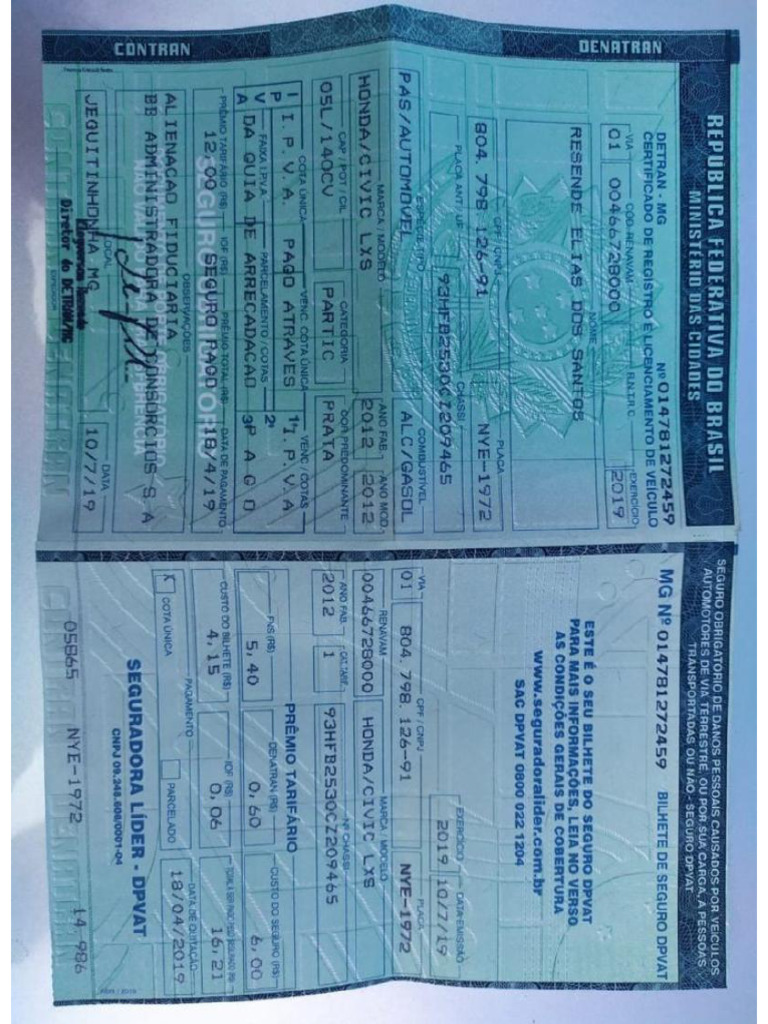 REPÚBLICA FEDERATIVA DO BRASIL
MINISTÉRIO DAS CIDADES
DENATRAN
CONTRAN
DETRAN - MG Nº 014781272459
CERTIFICADO DE REGISTRO E LICENCIAMENTO DE VEÍCULO
VIA COD. RENAVAM R.N.T.R.C. EXERCÍCIO
01 00466728000 2019
NOME
RESENDE ELIAS DOS SANTOS
CPF / CNPJ PLACA
804.798.126-91 NYE-1972
PLACA ANT / UF CHASSI
93HFB2530CZ209465
ESPÉCIE / TIPO COMBUSTÍVEL
PAS/AUTOMOVEL ALC/GASOL
MARCA / MODELO ANO FAB. ANO MOD.
HONDA/CIVIC LXS 2012 2012
CAP / POT / CIL CATEGORIA COR PREDOMINANTE
05L/140CV PARTIC PRATA
COTA ÚNICA VENC. COTA ÚNICA VENC / COTAS
I I.P.V.A. PAGO ATRAVES 1ª I.P.V.A
P FAIXA I.P.V.A. PARCELAMENTO / COTAS 2ª
V
A DA GUIA DE ARRECADACAO 3ª P A G O
PRÊMIO TARIFÁRIO (R$) IOF (R$) PRÊMIO TOTAL (R$) DATA DE PAGAMENTO
12,00 SEGURO PAGO 18/4/19
SEGURO OBRIGATÓRIO
OBSERVAÇÕES
ALIENACAO FIDUCIARIA
BB ADMINISTRADORA DE CONSORCIOS S A
LOCAL DATA
JEQUITINHONHA MG 10/7/19
Diretor do DETRAN/MG
EXPEDIDOR
SEGURO OBRIGATÓRIO DE DANOS PESSOAIS CAUSADOS POR VEÍCULOS
AUTOMOTORES DE VIA TERRESTRE, OU POR SUA CARGA, A PESSOAS
TRANSPORTADAS OU NÃO - SEGURO DPVAT
MG Nº 014781272459 BILHETE DE SEGURO DPVAT
ESTE É O SEU BILHETE DO SEGURO DPVAT
PARA MAIS INFORMAÇÕES, LEIA NO VERSO
AS CONDIÇÕES GERAIS DE COBERTURA
www.seguradoralider.com.br
SAC DPVAT 0800 022 1204
EXERCÍCIO DATA EMISSÃO
2019 10/7/19
VIA CPF / CNPJ PLACA
01 804.798.126-91 NYE-1972
RENAVAM MARCA / MODELO
00466728000 HONDA/CIVIC LXS
ANO FAB. CAT. TARIF. Nº CHASSI
2012 1 93HFB2530CZ209465
PRÊMIO TARIFÁRIO
FNS (R$) DENATRAN (R$) CUSTO DO SEGURO (R$)
5,40 0,60 6,00
CUSTO DO BILHETE (R$) IOF (R$) TOTAL A SER PAGO PELO SEGURADO (R$)
4,15 0,06 16,21
PAGAMENTO DATA DE QUITAÇÃO
X COTA ÚNICA PARCELADO 18/04/2019
SEGURADORA LÍDER - DPVAT
CNPJ 09.248.608/0001-04
05865 NYE-1972 14.986